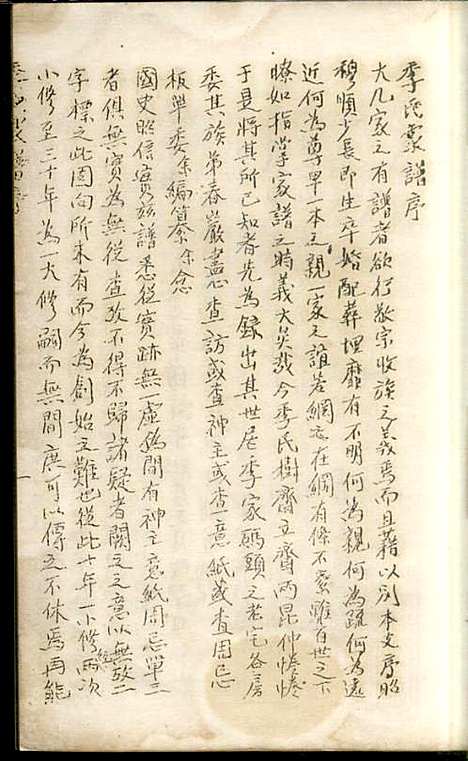 李氏家譜序
大凡家之有譜者欲行敬宗收族之義焉而且藉以別本支序昭
穆順少長即生卒婚配葬埋靡有不明何為親何為疏何為遠
近何為尊卑一本之親一家之誼若網之在綱有條不紊雖百世之下
瞭如指掌家譜之時義大矣哉今李氏樹齋立齋兩昆仲惓惓
于是將其所已知者先為錄出其世居李家碼頭之老宅各房
委其族弟春巖盡心查訪或查神主或查意紙或查周忌
板單委余編纂余念
國史昭信實茲譜悉從實跡無一虛偽間有神主意紙周忌單三
者俱無實為無從查攷不得不歸諸疑者闕文之意以無攷二
字標之此固向所未有而今為創始之難也從此十年一小修兩次
小修至三十年為一大修嗣而無間庶可以傳之不休焉再能